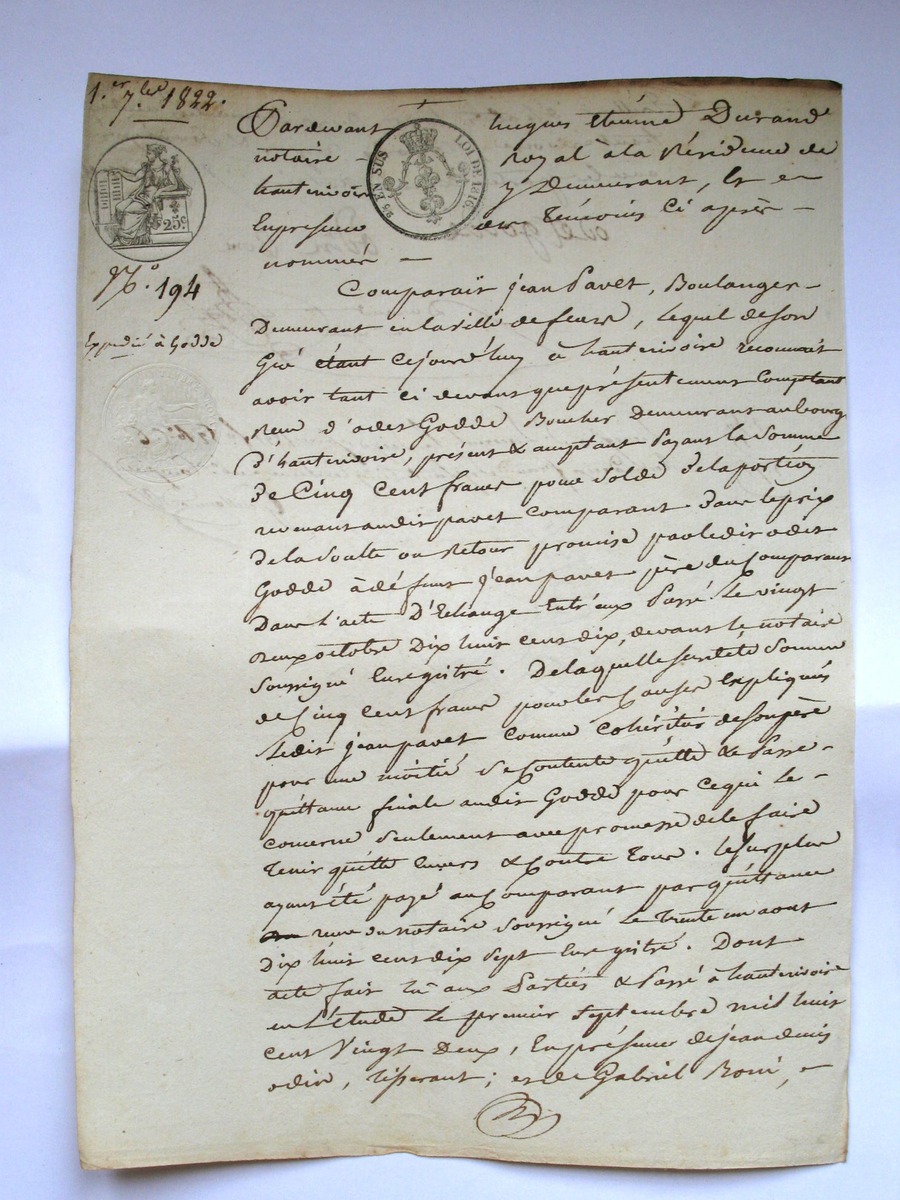 1.er 7.bre 1822.
25.c
25 EN SUS LOI DE 1816.
N.o 194
Expédié à Godde
Pardevant huques Etienne Durand
notaire - Royal à la Résidence de
hauterivoire y Demeurant, Et en
la presence des Témoins Ci après -
nommés -
Comparaît jean Pavet, Boulanger -
Demeurant en la ville de feurs, lequel de son
Gré étant cejourd'huy à hauterivoire reconnait
avoir tant ci devant que présentement Comptant
Reçu d'odet Godde Boucher Demeurant au bourg
D'hauterivoire, présent & acceptant Payant la Somme
De Cinq Cent francs pour Solde De la portion
revenant audit pavet comparant Dans le prix
De la Soulte ou Retour promise par ledit odet
Godde à défunt jean pavet père du Comparant
Dans l'acte D'Echange Entr'eux Passé Le vingt
Deux octobre Dix huit cent dix, devant le notaire
Soussigné Enregistré. De laquelle susdite Somme
de Cinq cent francs pour les Causes Expliquées
Ledit jean pavet comme cohéritier de son père
pour une moitié Se Contente quitte & Passe -
quittance finale audit Godde pour ce qui le -
concerne Seulement avec promesse de le faire
Tenir quitte Envers & Contre Tous. le Surplus
ayant été payé au Comparant par quittance
reçue du notaire Soussigné Le Trente un aout
Dix huit cent dix sept Enregistré. Dont
acte fait lu aux Parties & Passé à hauterivoire
en L'étude le premier Septembre mil huit
cent Vingt Deux, En présence de jean denis
odin, tisserant; et de Gabriel Boni, -